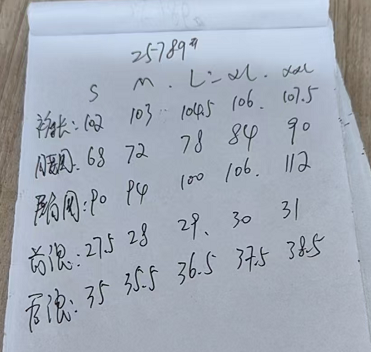 25789#
S M. L= XL. XXL
裤长: 102 103 104.5 106. 107.5
腰围: 68 72 78 84 90
臀围: 90 94 100 106. 112
前浪: 27.5 28 29. 30 31
后浪: 35 35.5 36.5 37.5 38.5